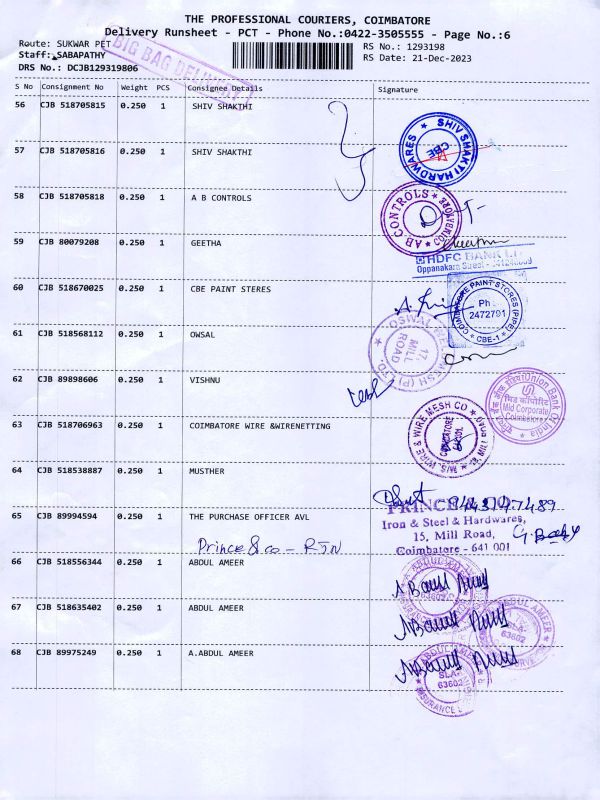 THE PROFESSIONAL COURIERS, COIMBATORE
Delivery Runsheet - PCT - Phone No.:0422-3505555 - Page No.:6
Route: SUKWAR PET
RS No.: 1293198
Staff: SABAPATHY
RS Date: 21-Dec-2023
DRS No.: DCJB129319806
BIG BAG
S No Consignment No Weight PCS Consignee Details Signature
56 CJB 518705815 0.250 1 SHIV SHAKTHI
SHIV SHAKTI HARDWARES CBE
57 CJB 518705816 0.250 1 SHIV SHAKTHI
58 CJB 518705818 0.250 1 A B CONTROLS
AB CONTROLS
59 CJB 80079208 0.250 1 GEETHA
HDFC BANK
Oppanakara Street
60 CJB 518670025 0.250 1 CBE PAINT STERES
COIMBATORE PAINT STORES (PIPE) Ph : 2472791 CBE-1
61 CJB 518568112 0.250 1 OWSAL
17, MILL ROAD
62 CJB 89898606 0.250 1 VISHNU
Union Bank Of India Mid Corporate Coimbatore
63 CJB 518706963 0.250 1 COIMBATORE WIRE &WIRENETTING
M/S. WIRE & WIRE MESH CO
64 CJB 518538887 0.250 1 MUSTHER
65 CJB 89994594 0.250 1 THE PURCHASE OFFICER AVL
Prince & co - RJN
PRINCE & CO
Iron & Steel & Hardwares,
15, Mill Road,
Coimbatore - 641 001
66 CJB 518556344 0.250 1 ABDUL AMEER
67 CJB 518635402 0.250 1 ABDUL AMEER
ABDUL AMEER
68 CJB 89975249 0.250 1 A.ABDUL AMEER